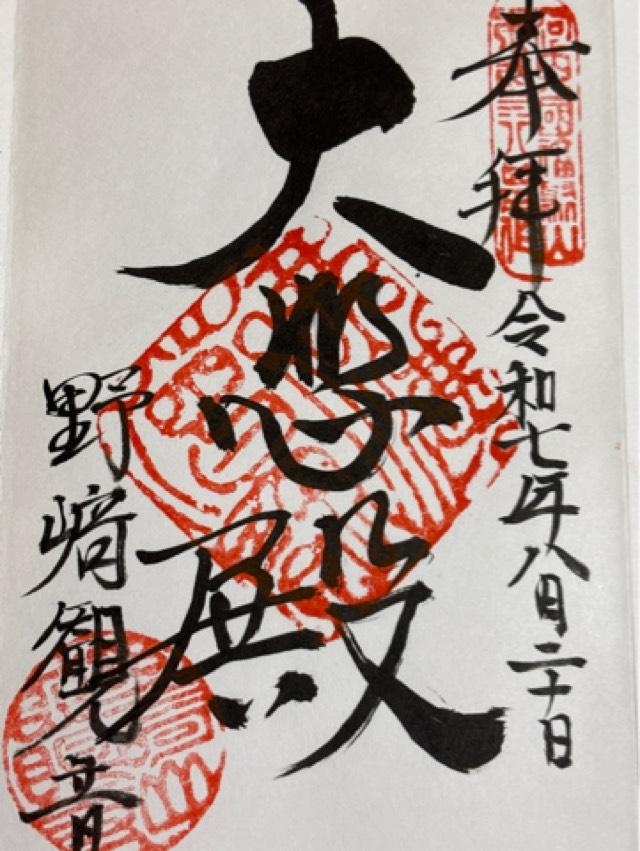 奉拝 令和七年八月二十日
大悲殿
野﨑観音